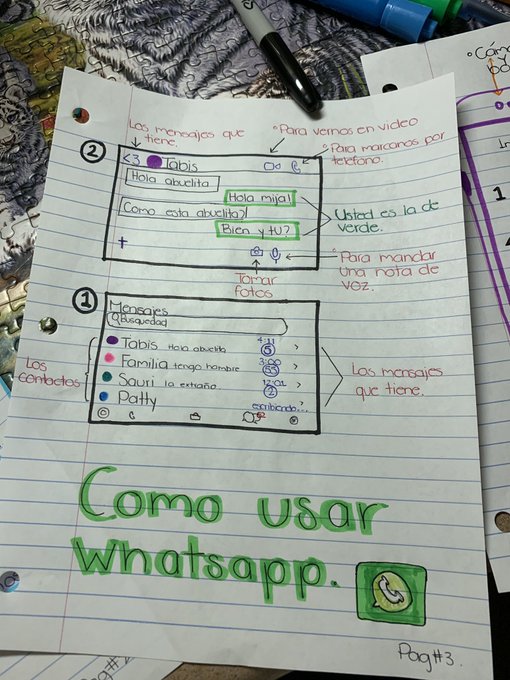 Los mensajes que tiene.
"Para vernos en video
"Para marcarnos por telefono.
2
<3 Tabis
Hola abuelita
Hola mija!
Como esta abuelita?
Bien y tu?
Usted es la de verde.
+
Tomar fotos
"Para mandar una nota de voz.
1
Mensajes
Busquedad
Tabis Hola abuelita 4:11 5 >
Familia tengo hambre 3:00 55 >
Sauri la extraño 12:01 2 >
Patty escribiendo... >
Los contactos
Los mensajes que tiene.
Como usar
Whatsapp.
Pag#3.
Pag#2
1